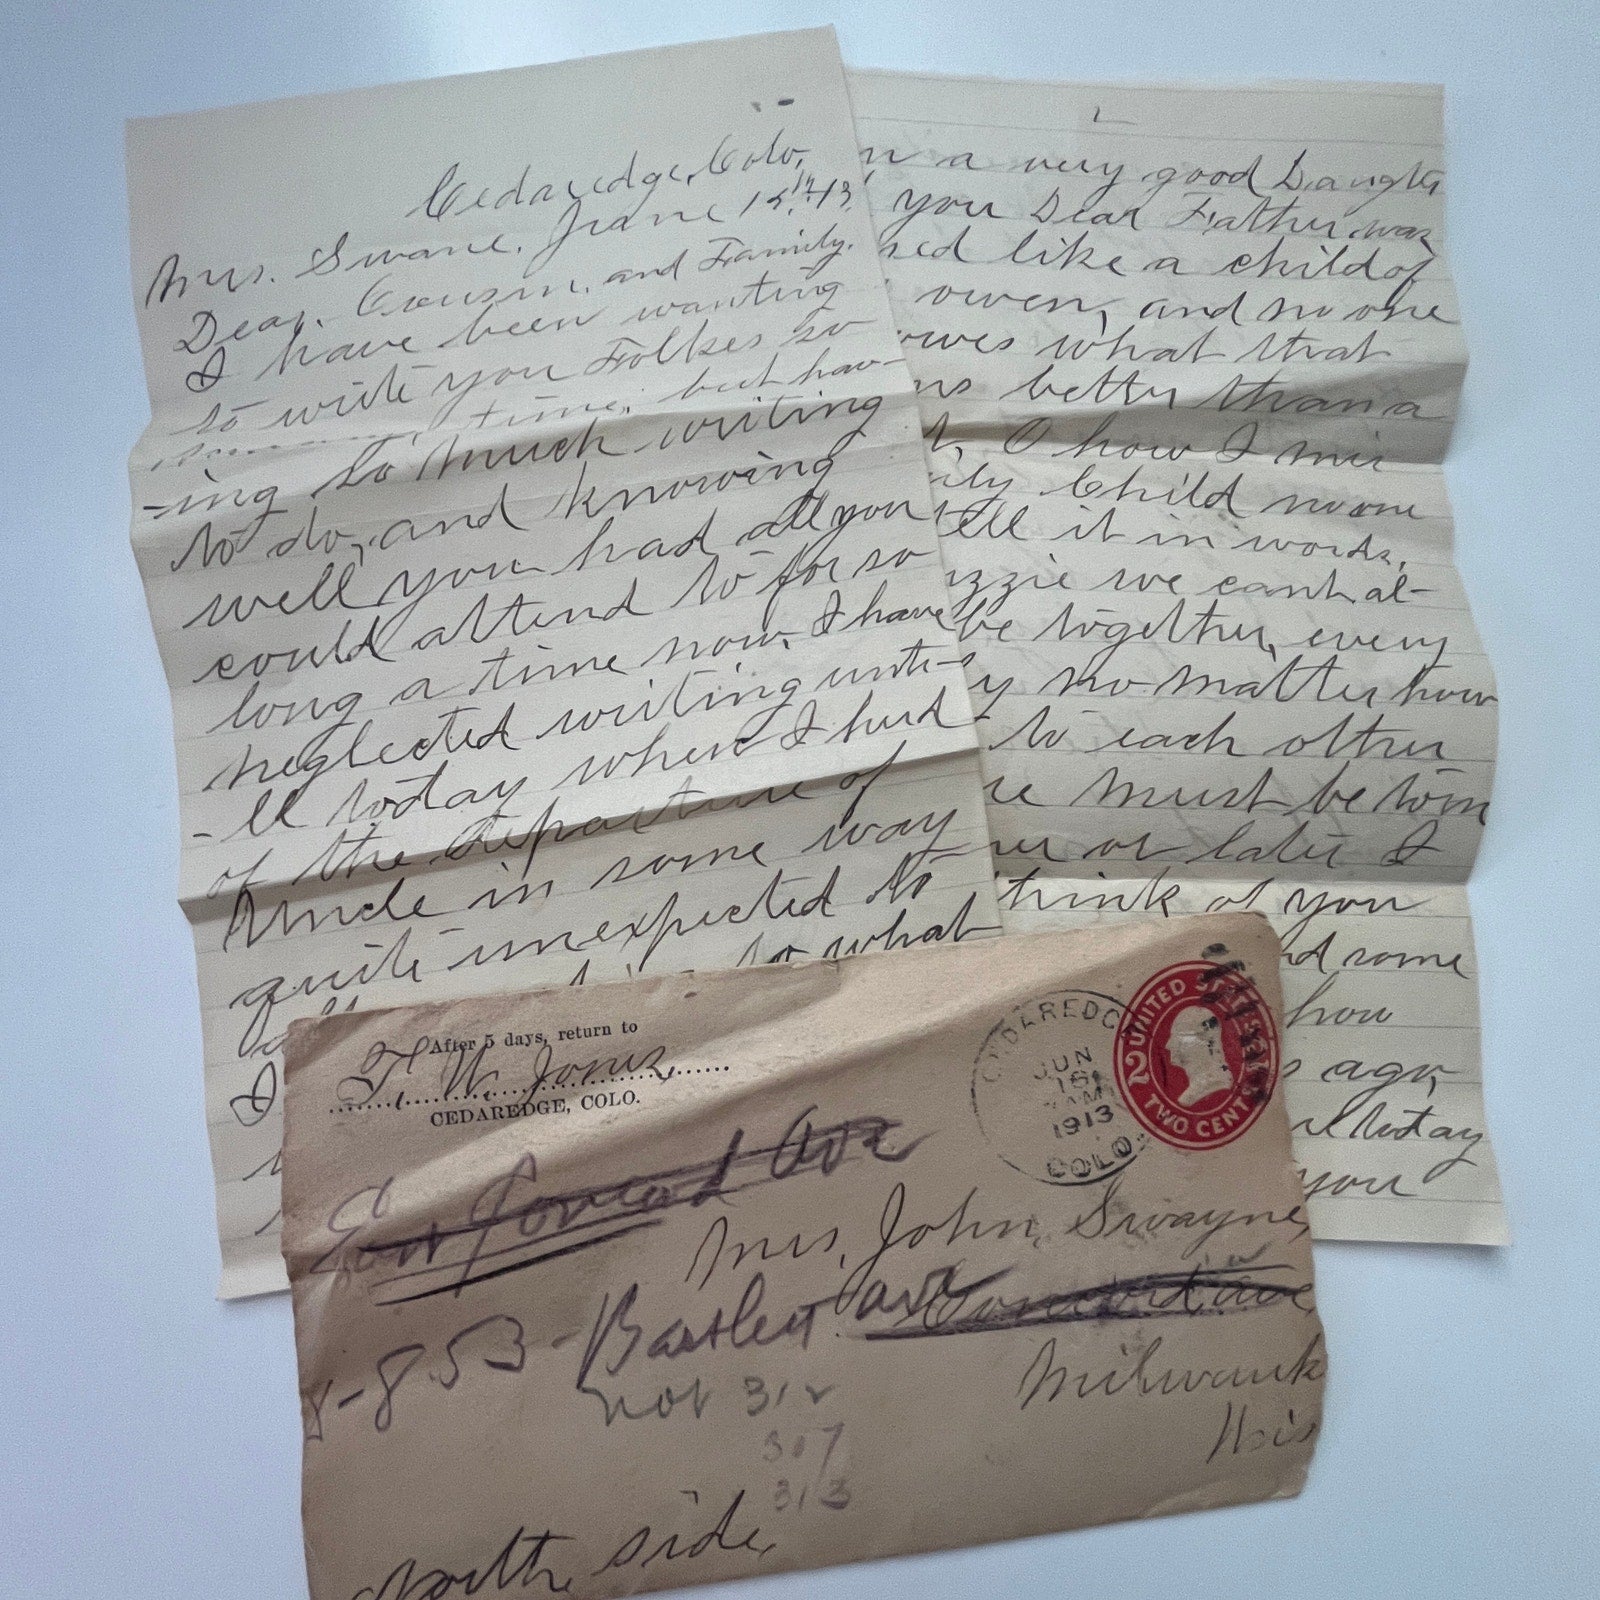 Cedaredge, Colo,
June 15th 13,
Mrs. Swane.
Dear, Cousin, and Family.
I have been wanting
to write you Folkes so
time, but hav-
-ing so much writing
to do, and knowing
well you had all you
could attend to for so
long a time now, I have
neglected writing unti-
-ll today when I hurd
of the departure of
Uncle in some way
quite unexpected to
to what
I
a very good Daughter
you Dear Father was
like a child of
owen, and no one
what that
better than a
O how I miss
Child no one
tell it in words,
we cant al-
be together, every
no matter how
to each other
must be torn
or later I
think of you
some
how
ago,
today
you
After 5 days, return to
T. W. Jones,
CEDAREDGE, COLO.
CEDAREDGE
JUN
16
AM
1913
COLO.
UNITED STATES
2
TWO CENTS
Concord Ave
Mrs, John, Swayne,
853 - Bartlett ave Concord ave,
Milwauk
Wis
not 312
317
313
North side,